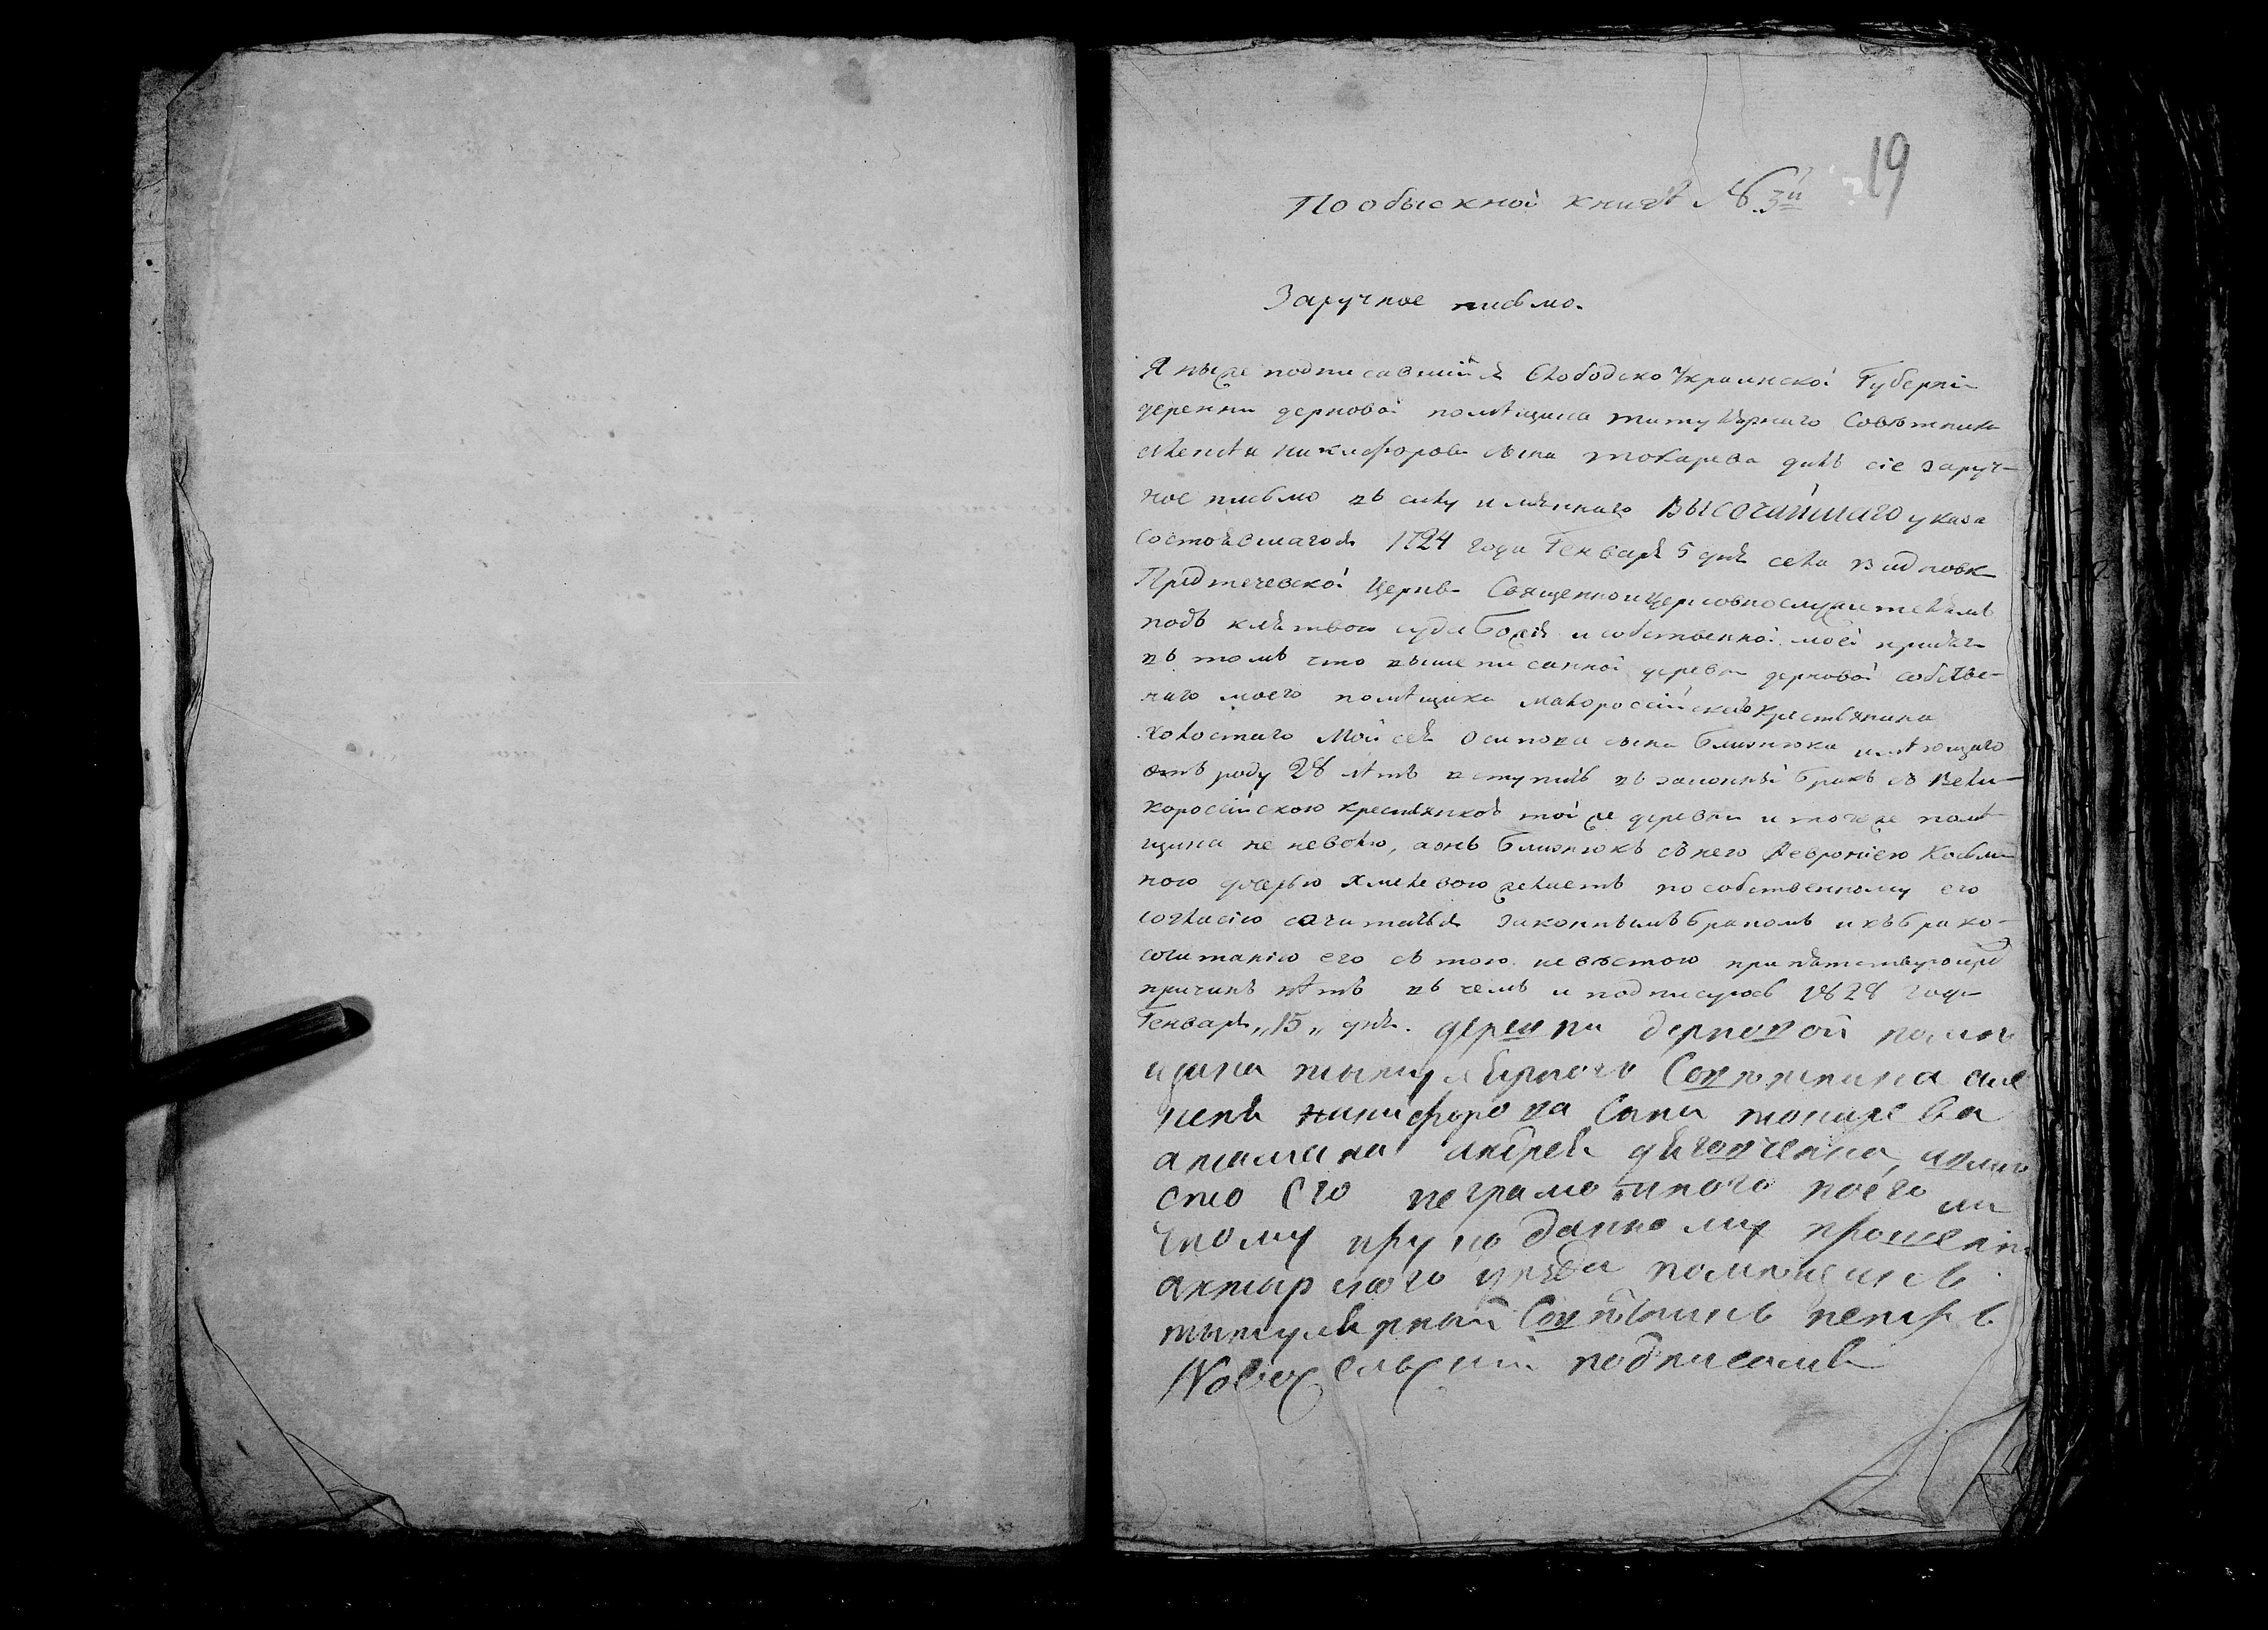 19
По обыскной книгѣ № 3й
Заручное письмо.
Я ниже подписавшійся Слободско Украинской Губерніи
деревни дерновой помѣщика титулярнаго Совѣтника
никифорова сына токарева далъ сіе заруч-
ное письмо въ силу имяннаго ВЫСОЧАЙШАГО указа
состоявшагося 1724 года Генваря 5 дня села
Предтечевской Церкви Священно и Церковнослужителямъ
подъ клятвою суда Божія и собственной моей
въ томъ что выше писанной деревни дерновой собстве-
наго моего помѣщика малороссійскаго крестьянина
холостаго Мойсея Осипова сына Близнюка имѣющаго
отъ роду 28 лѣтъ вступить въ законный бракъ съ Вели-
короссійскою крестьянкою той же деревни и того же помѣ-
щика не неволю, а онъ Близнюкъ съ него Февроніею Косьми-
ною дочерью Хмелевою желаетъ по собственному его
согласію сочитаться законнымъ бракомъ и къ брако-
сочитанію его съ тою невѣстою припятствующей
причинъ нѣтъ въ чемъ и подписуюсь 1828 года
Генваря „15„ дня. деревни дерновой помѣ
щика титулярного Совѣтника
никифорова Сина токарева
атамана андрей
сто Его неграмотного поего ли
чному прошенію
ахтырского уезда помѣщикъ
титулярный Совѣтникъ петръ
подписался